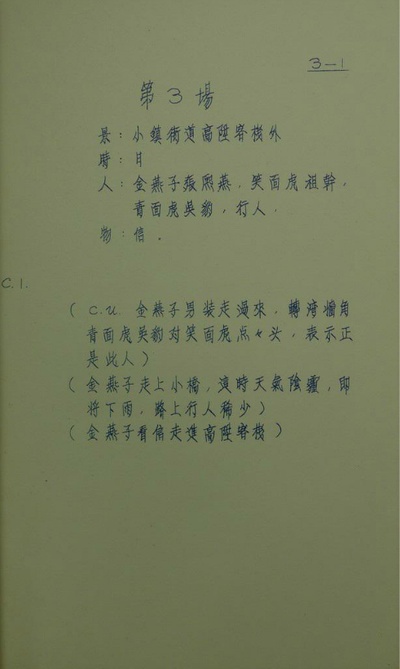 3-1
第3場
景：小鎮街道高陞客棧外
時：日
人：金燕子張熙燕，笑面虎祖幹，
青面虎吳豹，行人．
物：信．
C.1.
(C.U. 金燕子男裝走過來，轉灣墻角
青面虎吳豹对笑面虎点々头，表示正
是此人)
(金燕子走上小橋，這時天氣陰霾，即
将下雨，路上行人稀少)
(金燕子看信走進高陞客棧)